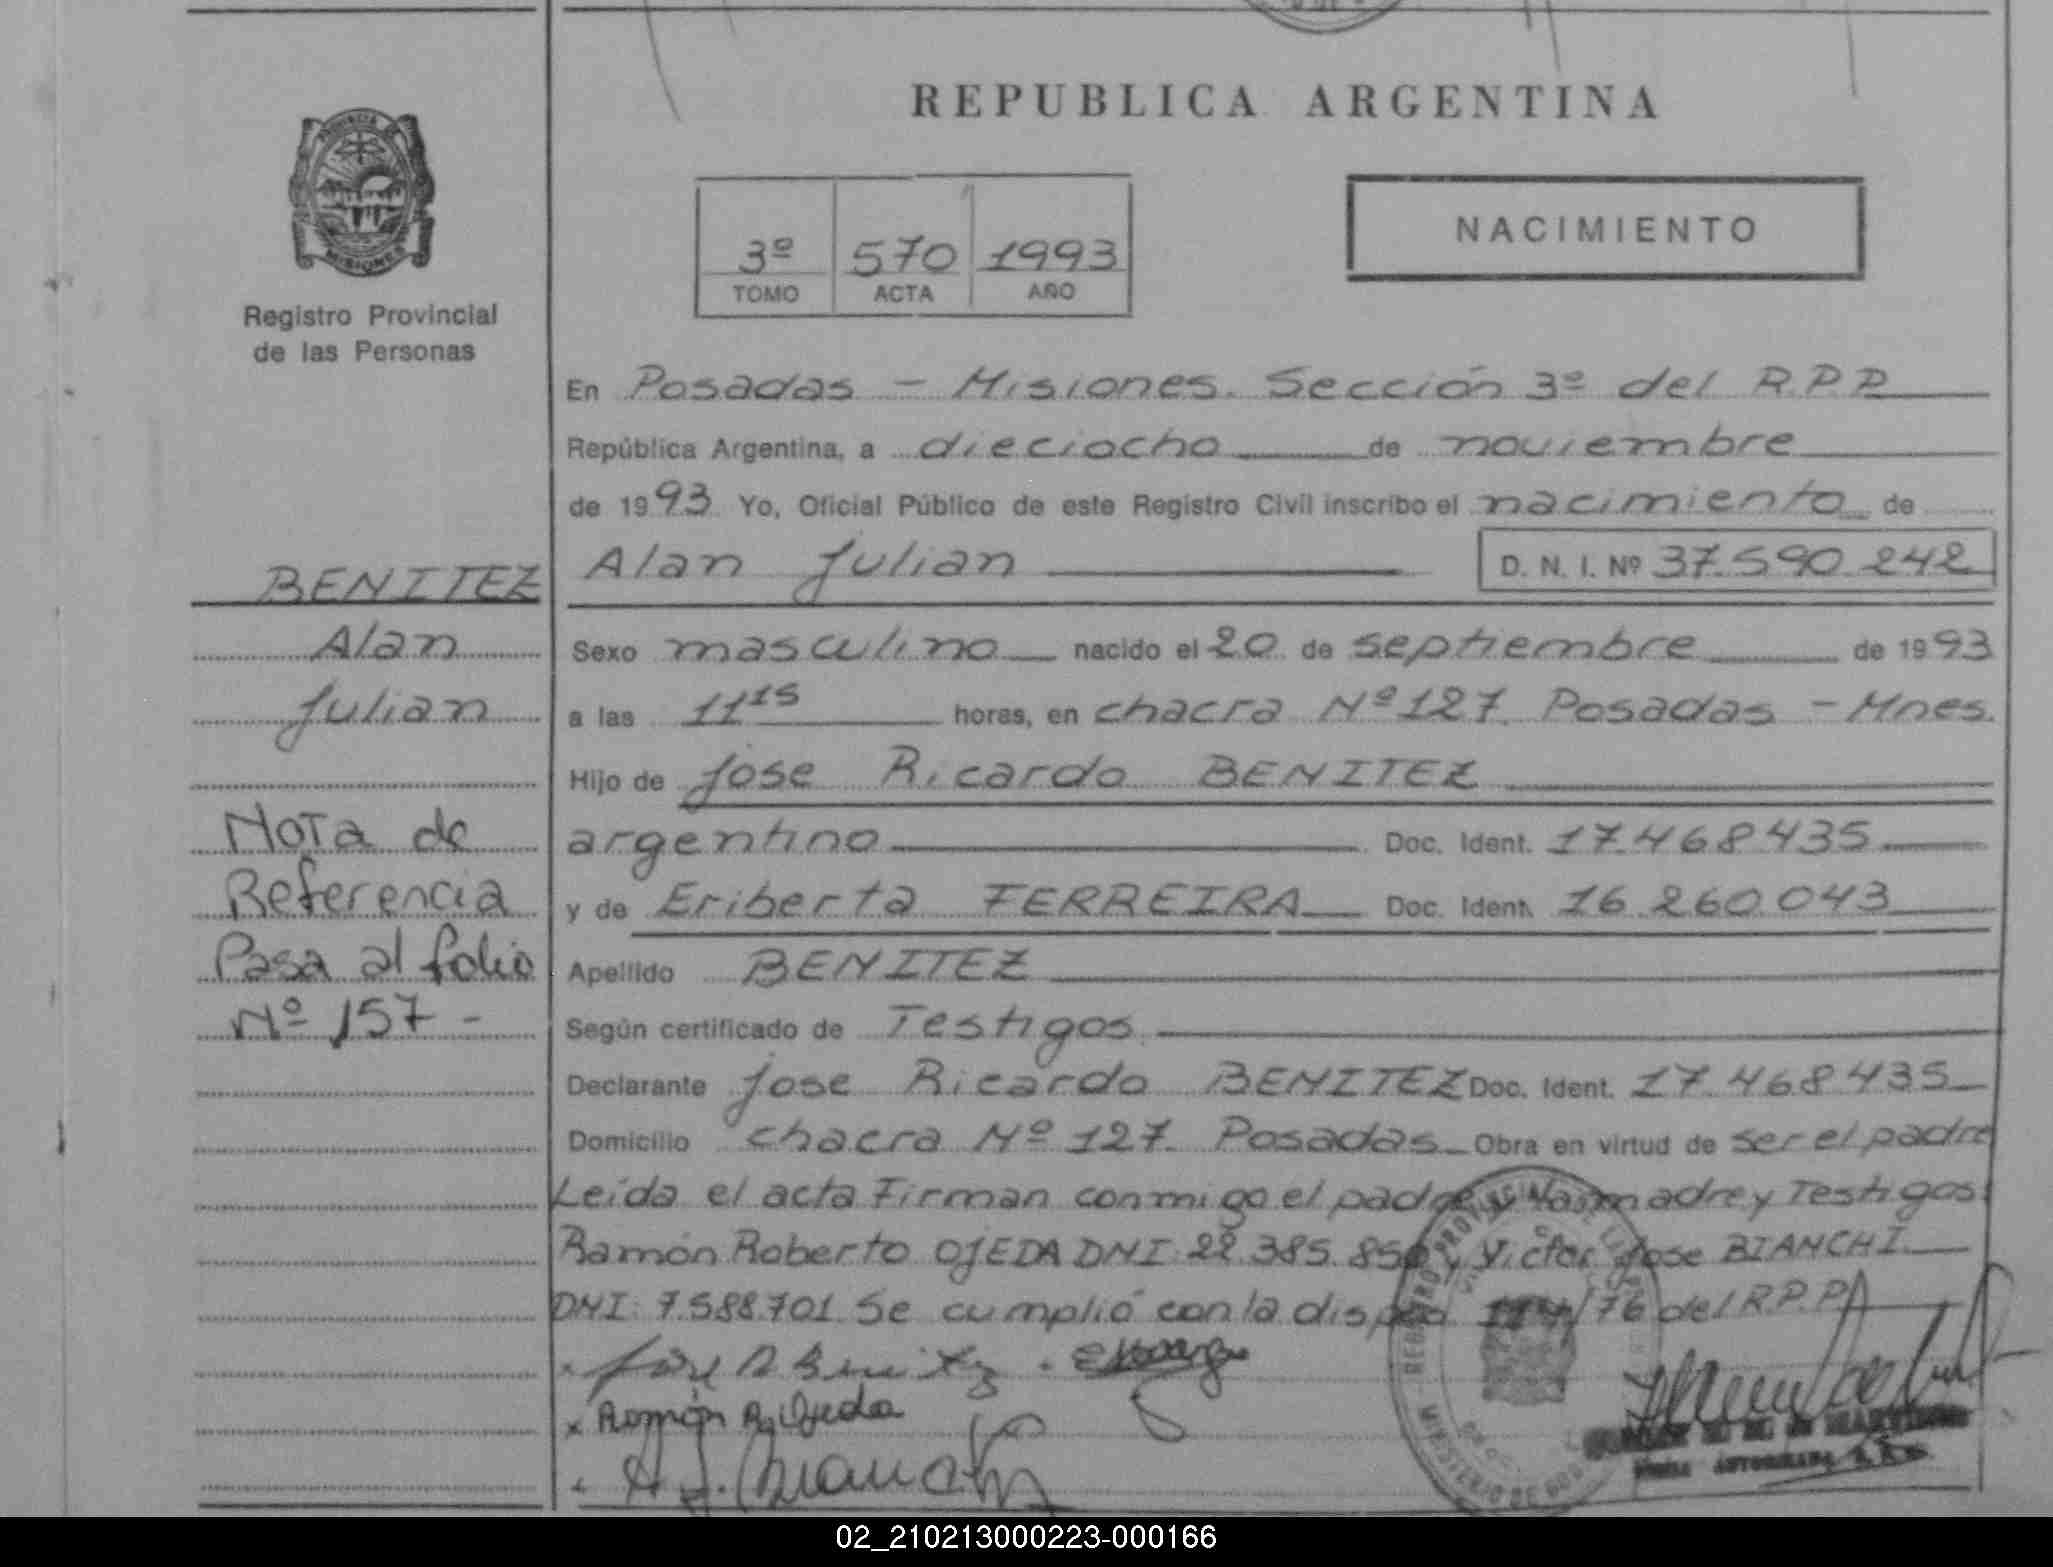 REPUBLICA ARGENTINA
PROVINCIA DE
MISIONES
Registro Provincial
de las Personas
3º 570 1993
TOMO ACTA AÑO
NACIMIENTO
En Posadas - Misiones. Sección 3º del R.P.P.
República Argentina, a dieciocho de noviembre
de 1993 Yo, Oficial Público de este Registro Civil inscribo el nacimiento de
Alan Julian D. N. I. Nº 37.590.242
Sexo masculino nacido el 20 de septiembre de 1993
a las 11 15 horas, en chacra Nº 127. Posadas - Mnes.
Hijo de Jose Ricardo BENITEZ
argentino Doc. Ident. 17.468435
y de Eriberta FERREIRA Doc. Ident. 16.260.043
Apellido BENITEZ
Según certificado de Testigos
Declarante Jose Ricardo BENITEZ Doc. Ident. 17.468435
Domicilio chacra Nº 127. Posadas Obra en virtud de ser el padre
Leída el acta Firman conmigo el padre y la madre y Testigos
Ramón Roberto OJEDA DNI: 22.385.850 y Victor Jose BIANCHI
DNI: 7.588.701. Se cumplió con la dispo /76 del R.P.P.
Ramón R. Ojeda
BENITEZ
Alan
Julian
Nota de
Referencia
Pasa al folio
Nº 157 -
02_210213000223-000166